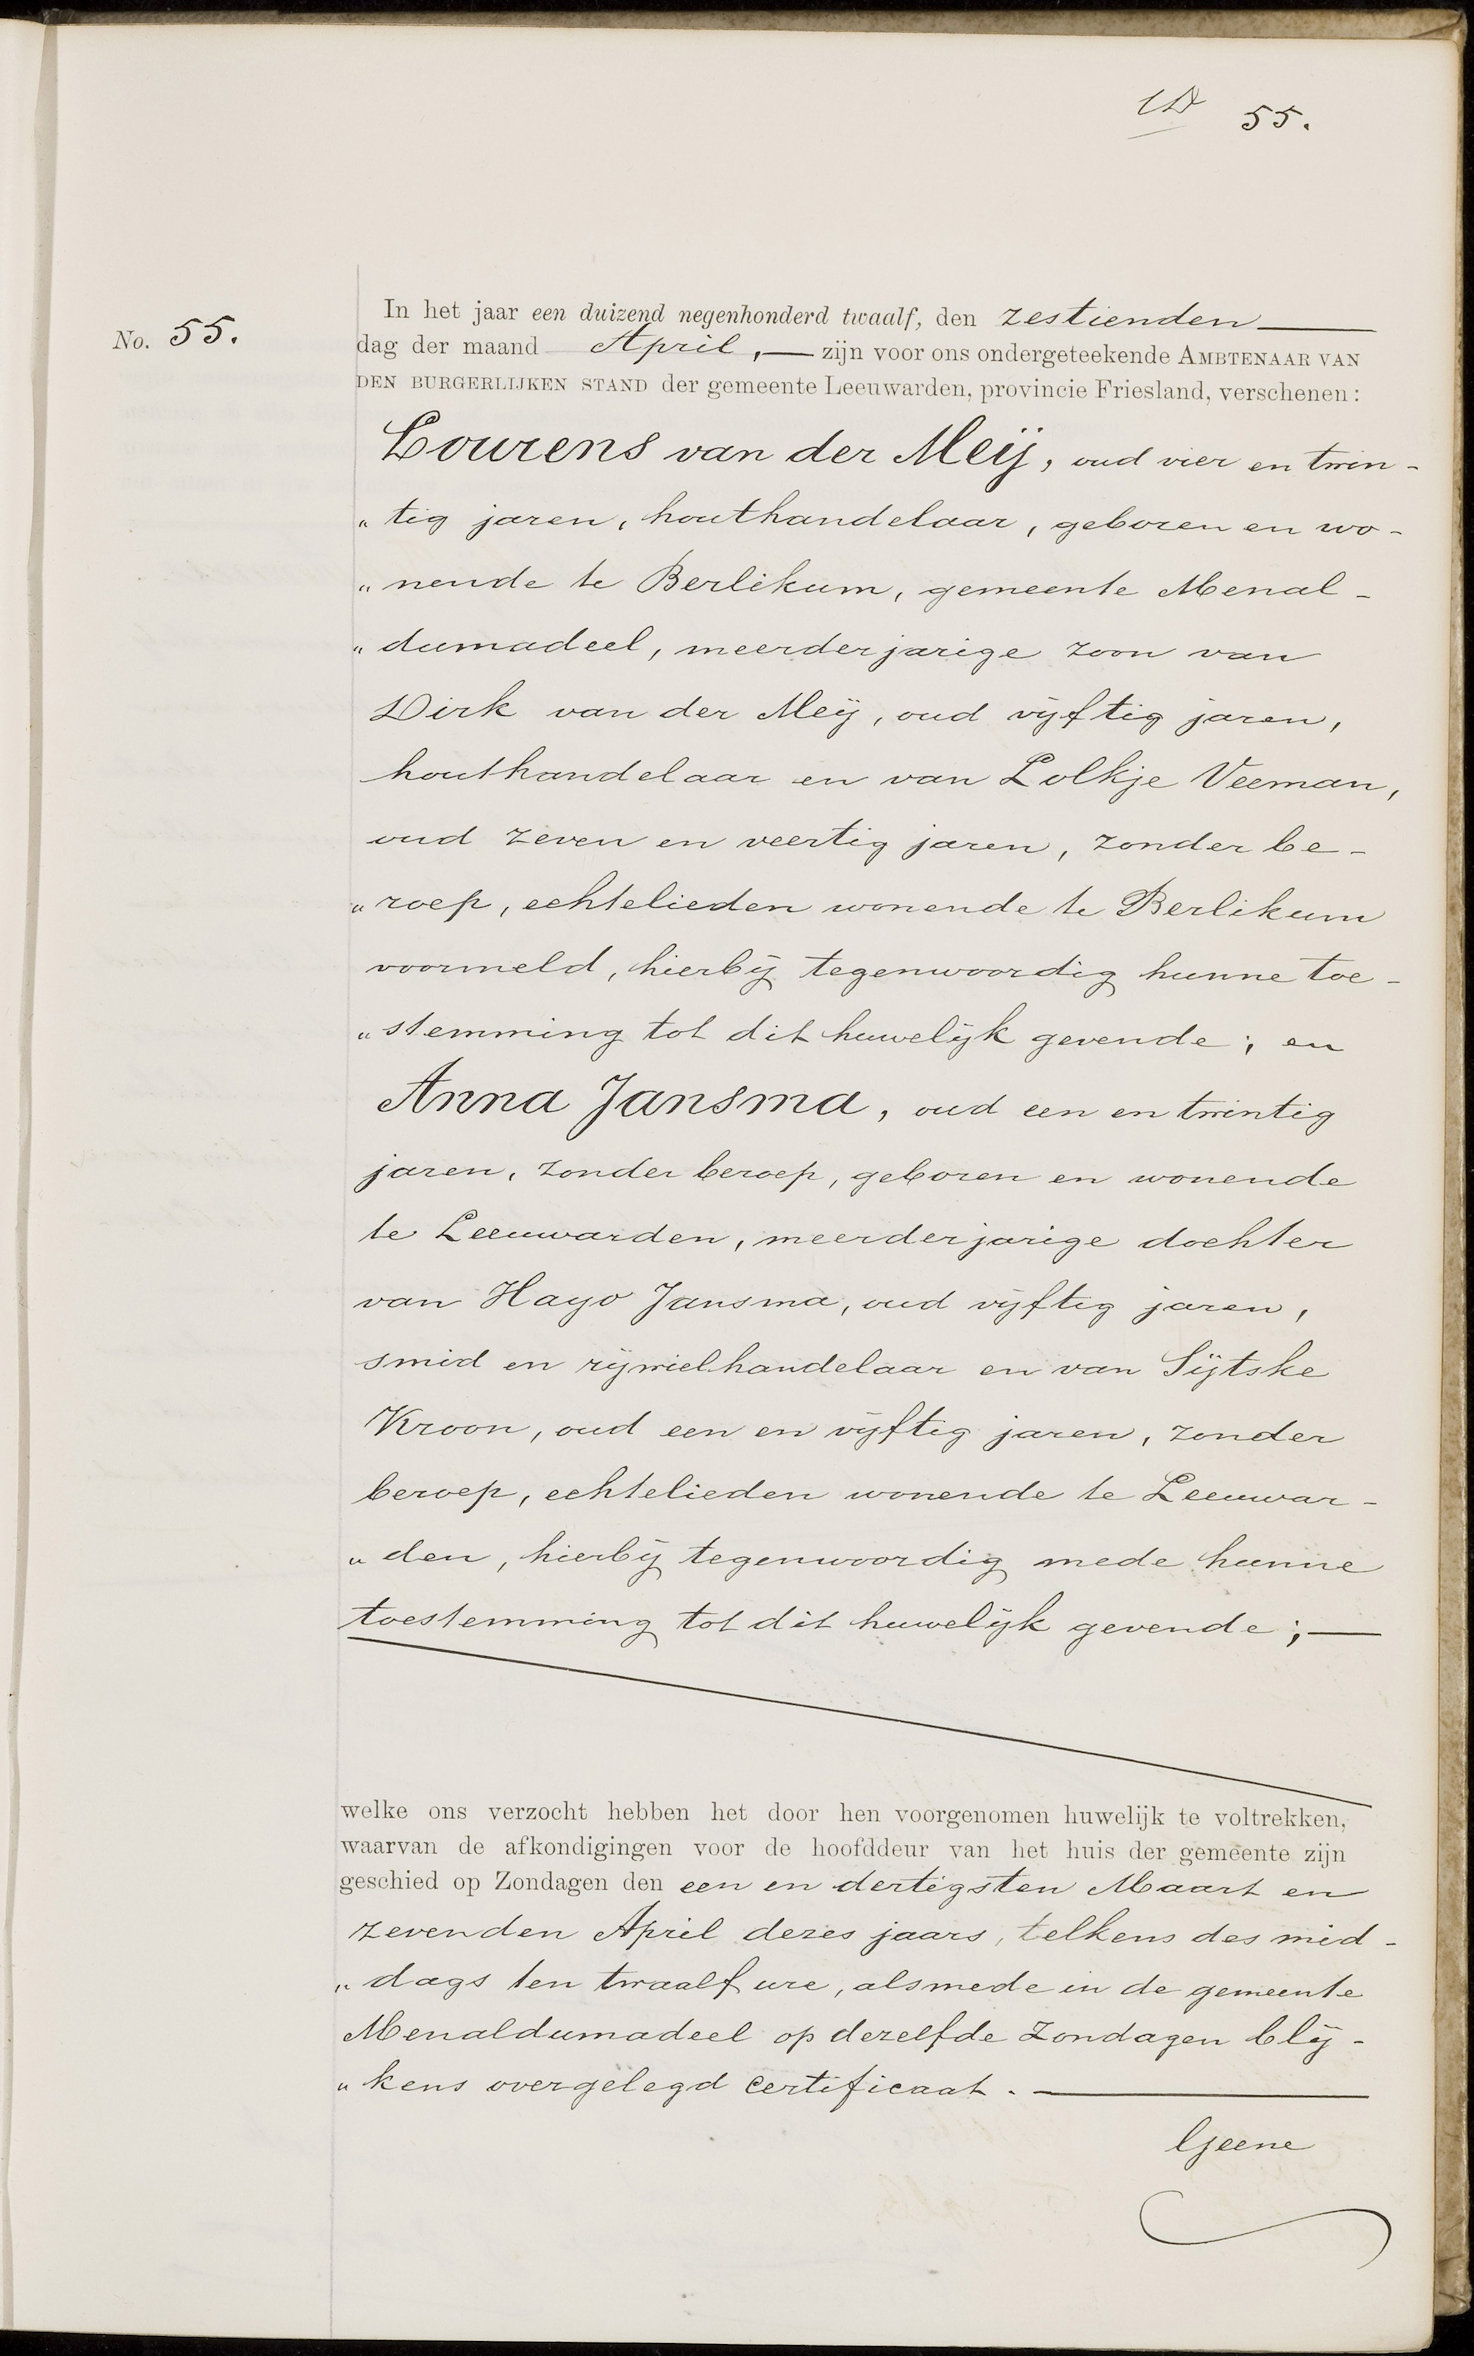 55.
No. 55.
In het jaar een duizend negenhonderd twaalf, den zestienden
dag der maand April, zijn voor ons ondergeteekende AMBTENAAR VAN
DEN BURGERLIJKEN STAND der gemeente Leeuwarden, provincie Friesland, verschenen:
Lourens van der Meij, oud vier en twin-
„tig jaren, houthandelaar, geboren en wo-
„nende te Berlikum, gemeente Menal-
„dumadeel, meerderjarige zoon van
Dirk van der Meij, oud vijftig jaren,
houthandelaar en van Lolkje Veeman,
oud zeven en veertig jaren, zonder be-
„roep, echtelieden wonende te Berlikum
voormeld, hierbij tegenwoordig hunne toe-
„stemming tot dit huwelijk gevende; en
Anna Jansma, oud een en twintig
jaren, zonder beroep, geboren en wonende
te Leeuwarden, meerderjarige dochter
van Hayo Jansma, oud vijftig jaren,
smid en rijwielhandelaar en van Sijtske
Kroon, oud een en vijftig jaren, zonder
beroep, echtelieden wonende te Leeuwar-
„den, hierbij tegenwoordig mede hunne
toestemming tot dit huwelijk gevende;
welke ons verzocht hebben het door hen voorgenomen huwelijk te voltrekken,
waarvan de afkondigingen voor de hoofddeur van het huis der gemeente zijn
geschied op Zondagen den een en dertigsten Maart en
zevenden April dezes jaars, telkens des mid-
„dags ten twaalf ure, alsmede in de gemeente
Menaldumadeel op dezelfde Zondagen blij-
„kens overgelegd certificaat.
Geene